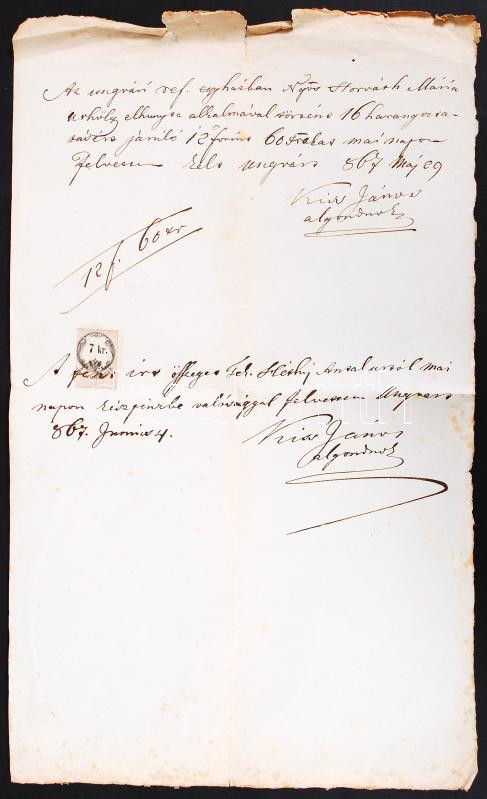 Az ungvári ref. egyházban Nyős Horváth Mária
úrhölgy elhunyta alkalmával történt 16 harangozta-
tásért járuló 12 forint 60 xrokat mai napon
felvettem Kelt Ungvárt 867 Maj 29
Kiss János
algondnok
12 f. 60 xr
7 kr.
A fent írt összeget Tek. Antal úrtól mai
napon készpénzbe valósággal felvettem Ungvart
867. Junius 4.
Kiss János
algondnok